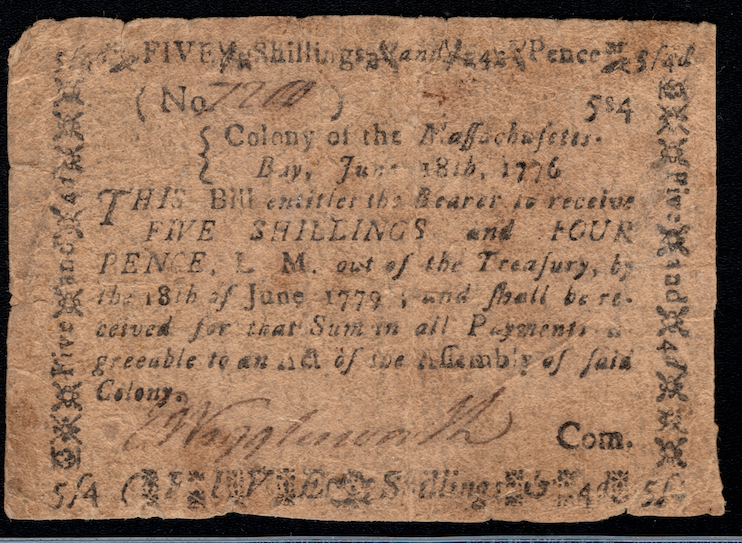 FIVE Shillings and 4 Pence 5ſ4d
(No. )
5s4
Colony of the Maſſachuſetts-
Bay, June 18th, 1776
THIS Bill entitles the Bearer to receive
FIVE SHILLINGS and FOUR
PENCE, L M. out of the Treaſury, by
the 18th of June 1779 ; and ſhall be re-
ceived for that Sum in all Payments a-
greeable to an Act of the Aſſembly of ſaid
Colony.
E Wigglesworth Com.
5ſ4 FIVE Shillings & 4d 5ſ4
Five and 4d
Five and 4d